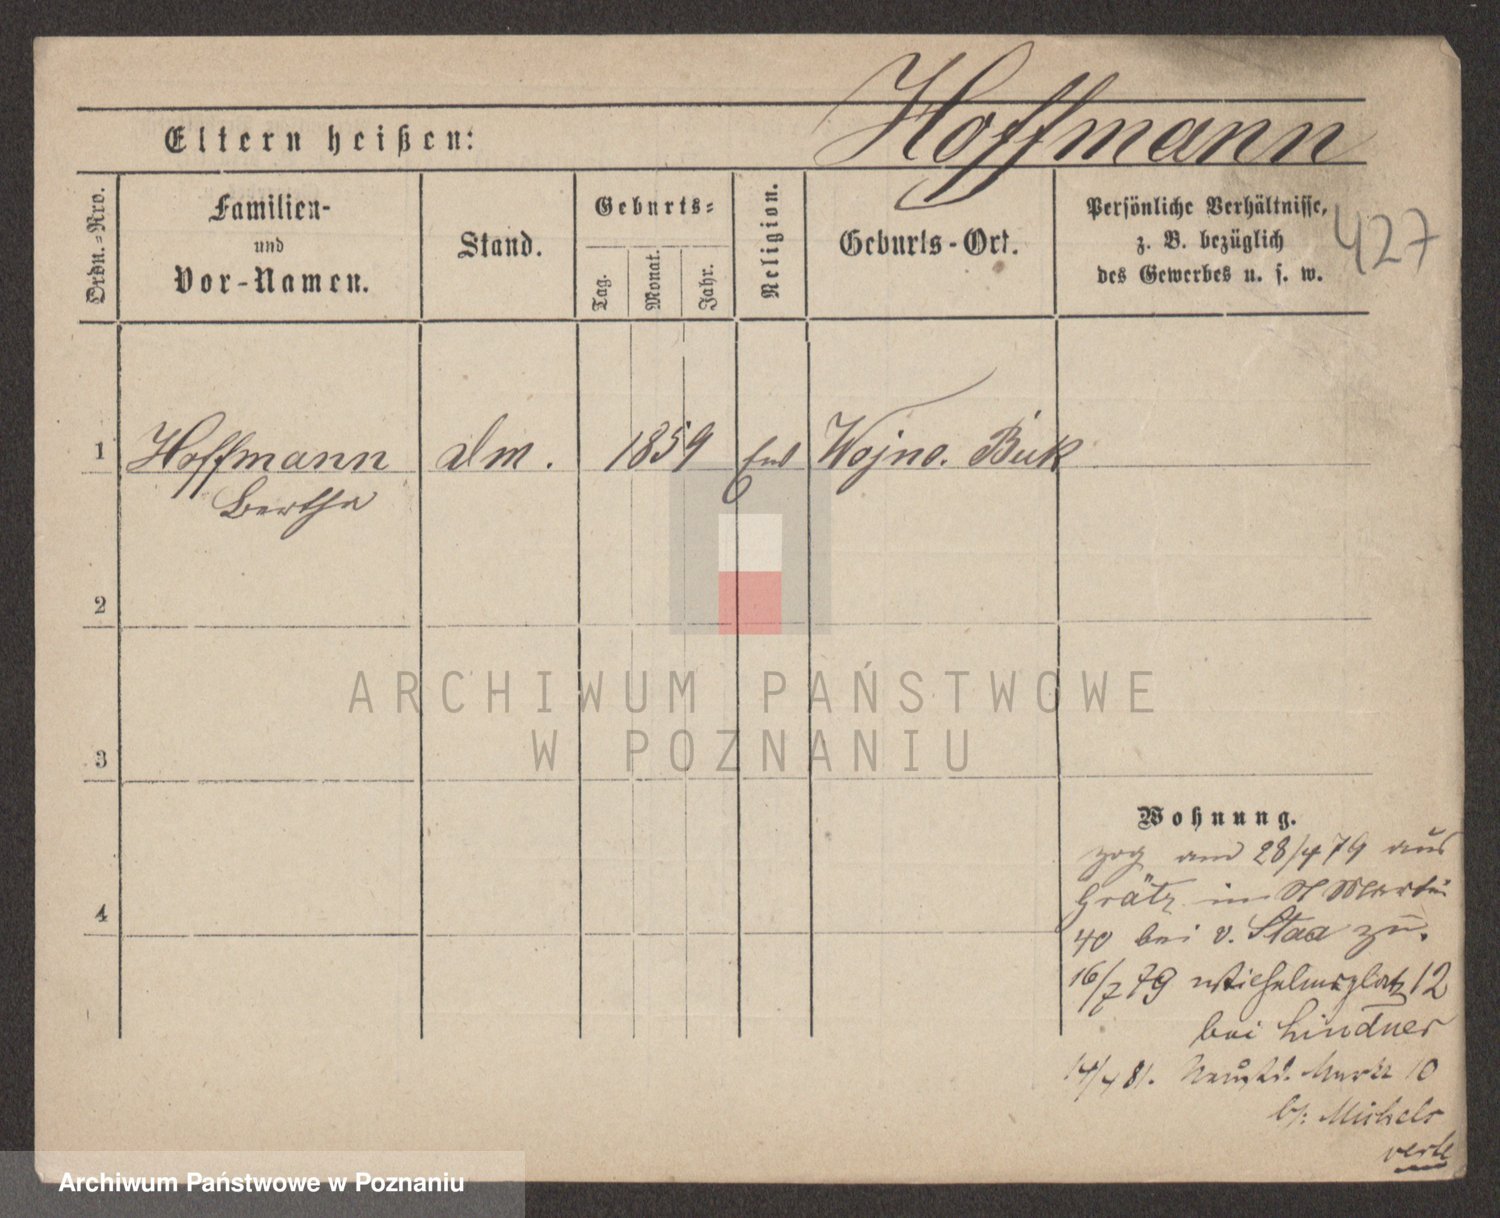 Hoffmann
Eltern heißen:
Ordn.=Nro.
Familien-
und
Vor-Namen.
Stand.
Geburts=
Tag.
Monat.
Jahr.
Religion.
Geburts-Ort.
Persönliche Verhältnisse,
z. B. bezüglich
des Gewerbes u. s. w.
427
1 Hoffmann dm. 1859 Wojno. Buk
Bertha
2
3
4
Wohnung.
zog am 28/4 79 aus
Grätz in St Martin
40 bei v. Staa zu.
16/7 79 Wilhelmsplatz 12
bei Lindner
14/4 81. Neust. Markt 10
b/: Michels
verte
ARCHIWUM PAŃSTWOWE
W POZNANIU
Archiwum Państwowe w Poznaniu